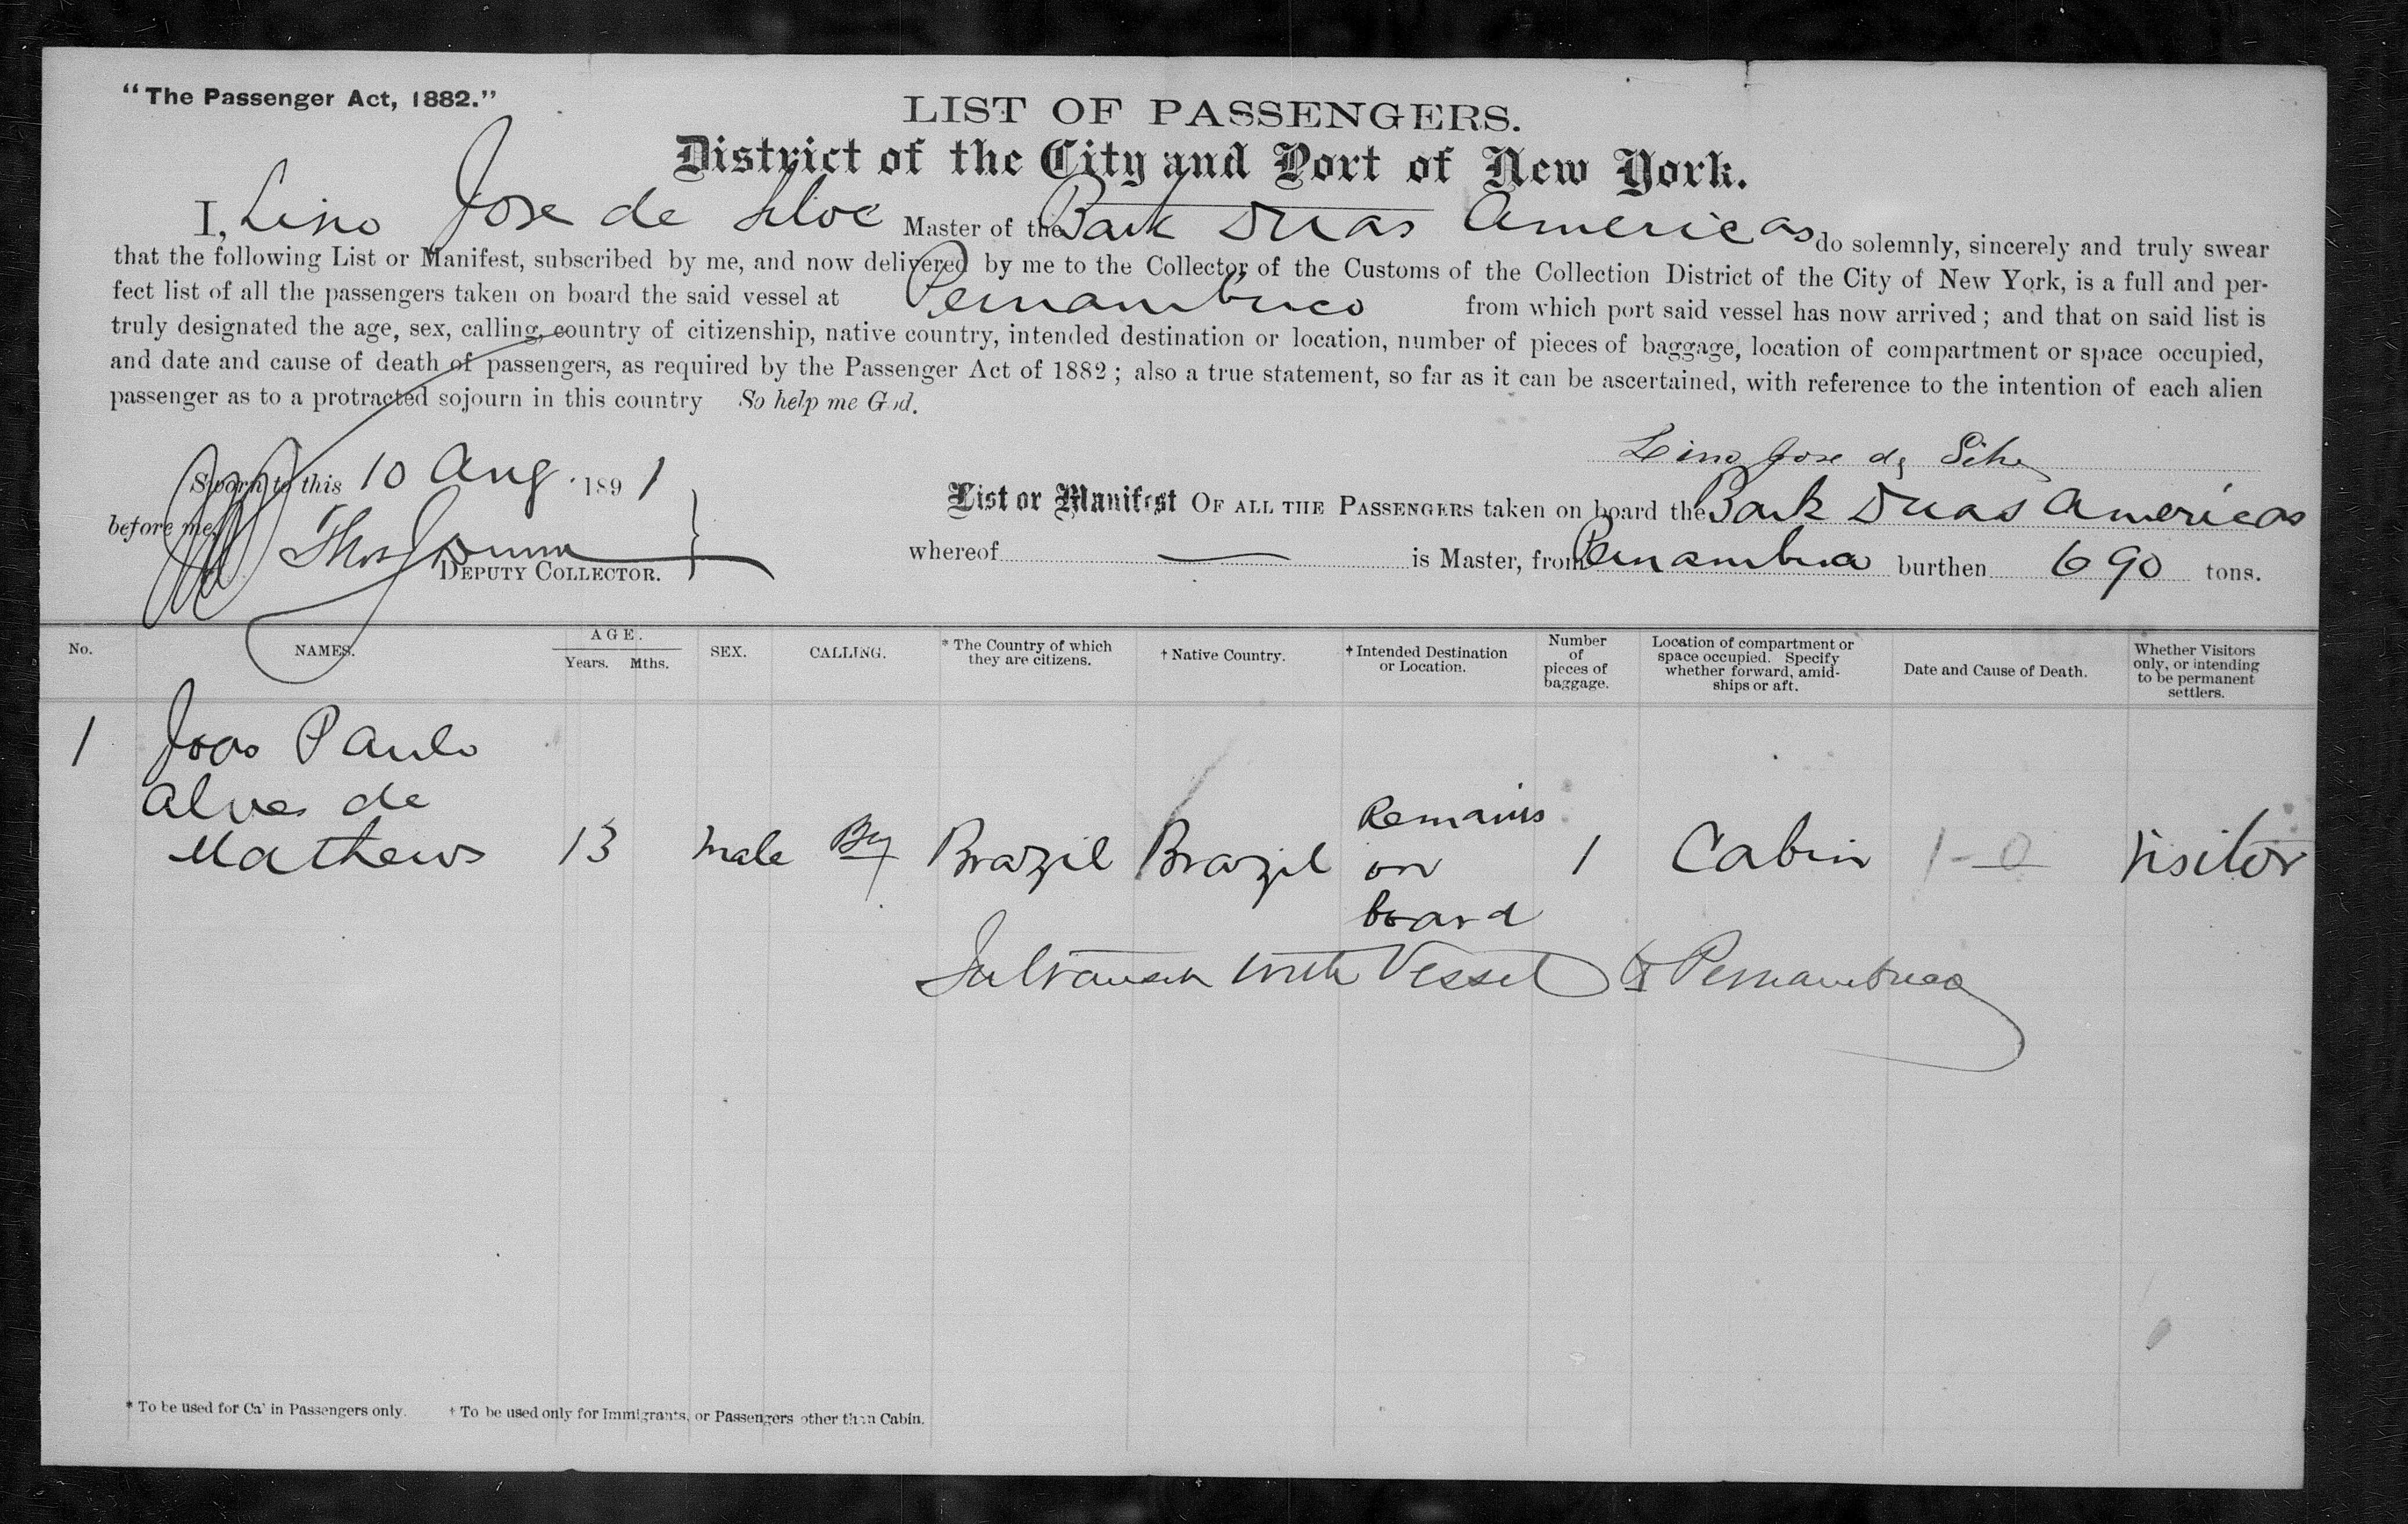 "The Passenger Act, 1882."
LIST OF PASSENGERS.
District of the City and Port of New York.
I, Lino Jose de Silva Master of the Bark Duas Americas do solemnly, sincerely and truly swear
that the following List or Manifest, subscribed by me, and now delivered by me to the Collector of the Customs of the Collection District of the City of New York, is a full and per-
fect list of all the passengers taken on board the said vessel at Pernambuco from which port said vessel has now arrived; and that on said list is
truly designated the age, sex, calling, country of citizenship, native country, intended destination or location, number of pieces of baggage, location of compartment or space occupied,
and date and cause of death of passengers, as required by the Passenger Act of 1882; also a true statement, so far as it can be ascertained, with reference to the intention of each alien
passenger as to a protracted sojourn in this country So help me God.
Lino Jose de Silva
Sworn to this 10 Aug. 1891
before me,
Thos J Dunn
DEPUTY COLLECTOR.
List or Manifest OF ALL THE PASSENGERS taken on board the Bark Duas Americas
whereof — is Master, from Pernambuco burthen 690 tons.
No. NAMES. AGE. Years. Mths. SEX. CALLING. * The Country of which they are citizens. † Native Country. † Intended Destination or Location. Number of pieces of baggage. Location of compartment or space occupied. Specify whether forward, amid-ships or aft. Date and Cause of Death. Whether Visitors only, or intending to be permanent settlers.
1 Joao Paulo
Alves de
Mathews 13 Male Boy Brazil Brazil Remains on board 1 Cabin 1-0 Visitor
In transit with Vessel to Pernambuco
* To be used for Cabin Passengers only. † To be used only for Immigrants, or Passengers other than Cabin.